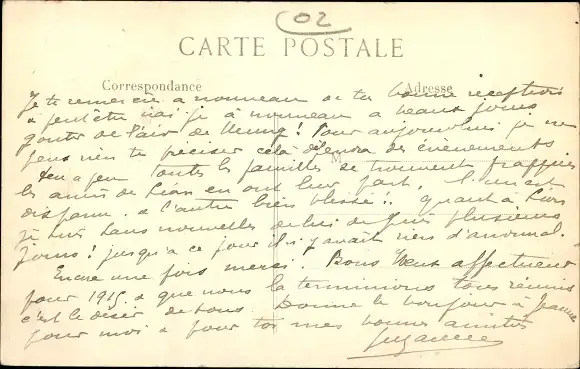 02
CARTE POSTALE
Correspondance
Adresse
Je te remercie à nouveau de ta bonne réception
& peut être irai-je à nouveau à beaux jours
goûter de l'air de ! Pour aujourd'hui je ne
peux rien te préciser cela dépendra des événements
Peu à peu toutes les familles se trouvent frappées
les amis de en ont leur part, l'un est
disparu & l'autre bien blessé !. Quant à
je suis sans nouvelles de lui depuis plusieurs
jours ! jusqu'à ce jour il n'y avait rien d'anormal.
Encore une fois merci. Bons vœux affectueux
pour 1915 & que nous la terminions tous réunis
c'est le désir de tous. Donne le bonjour à Jeanne
pour moi & pour toi mes bonnes amitiés
Suzanne